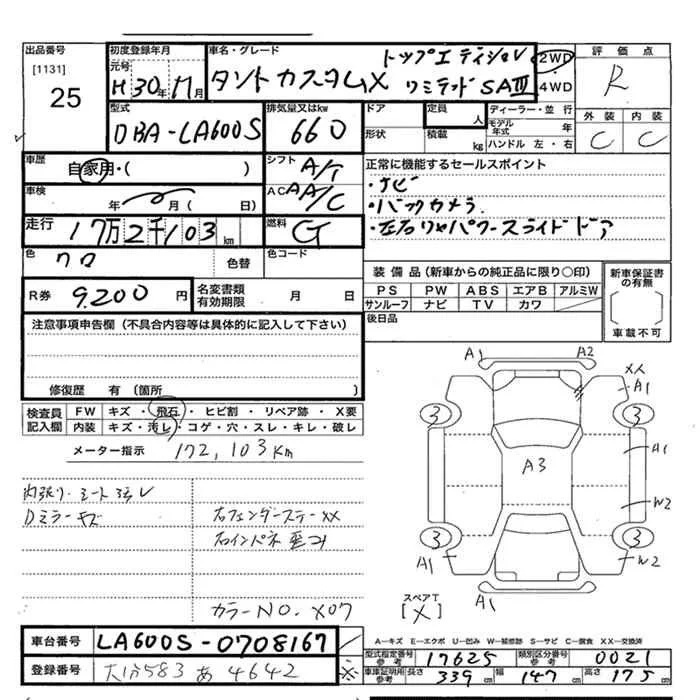 出品番号
[1131]
25
初度登録年月
元号
H30年11月
車名・グレード
トップエディション
タントカスタムX リミテッドSAⅢ
2WD
4WD
評価点
R
型式
DBA-LA600S
排気量又はkw
660
ドア
形状
定員
人
積載
kg
ディーラー・並行
モデル年式 年
ハンドル 左・右
外装 内装
C C
車歴
自家用・( )
シフト
A/T
正常に機能するセールスポイント
・ナビ
・バックカメラ
・左右リヤパワースライドドア
車検
年 月( 日)
AC
AA/C
走行
17万2千103km
燃料
G
色
クロ
色替
色コード
装備品(新車からの純正品に限り○印)
PS PW ABS エアB アルミW
サンルーフ ナビ TV カワ
新車保証書の有無
車載不可
R券
9,200円
名変書類有効期限 月 日
後日品
注意事項申告欄(不具合内容等は具体的に記入して下さい)
修復歴 有(箇所 )
検査員記入欄
FW キズ・飛石・ヒビ割・リペア跡・X要
内装 キズ・汚レ・コゲ・穴・スレ・キレ・破レ
メーター指示 172,103Km
内張り・シート ヨゴレ
Dミラーキズ
右フェンダーステーXX
右インパネ歪コミ
カラーNO. X07
A1 A2
XX
A1
3 3
A3
A1
W2
3 3
A1
W2
A1
スペアT
[X]
A-キズ E-エクボ U-凹み W-補修跡 S-サビ C-腐食 XX-交換済
車台番号
LA600S-0708167
登録番号
大分583 あ 4642
型式指定番号参考
17625
類別区分番号参考
0021
車庫証明用参考
長さ 339cm 幅 147cm 高さ 175cm